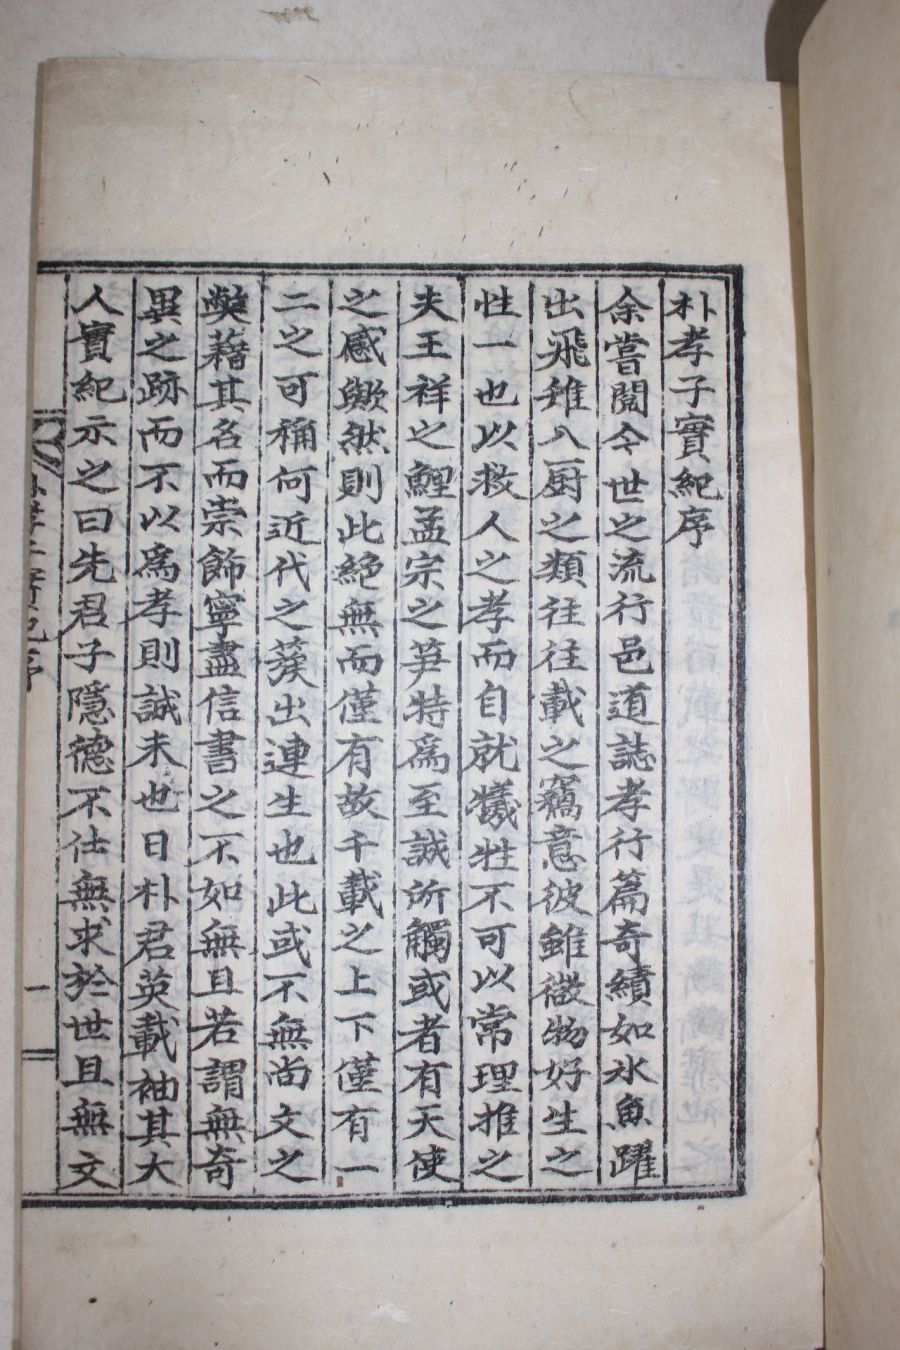 朴孝子實紀序
余嘗閱今世之流行邑道誌孝行篇奇績如氷魚躍
出飛雉入厨之類往往載之竊意彼雖微物好生之
性一也以救人之孝而自就犧牲不可以常理推之
夫王祥之鯉孟宗之笋特爲至誠所觸或者有天使
之感歟然則此絶無而僅有故千載之上下僅有一
二之可稱何近代之簇出連生也此或不無尚文之
弊藉其名而崇飾寧盡信書之不如無且若謂無奇
異之跡而不以爲孝則誠未也日朴君英載袖其大
人實紀示之曰先君子隱德不仕無求於世且無文
一